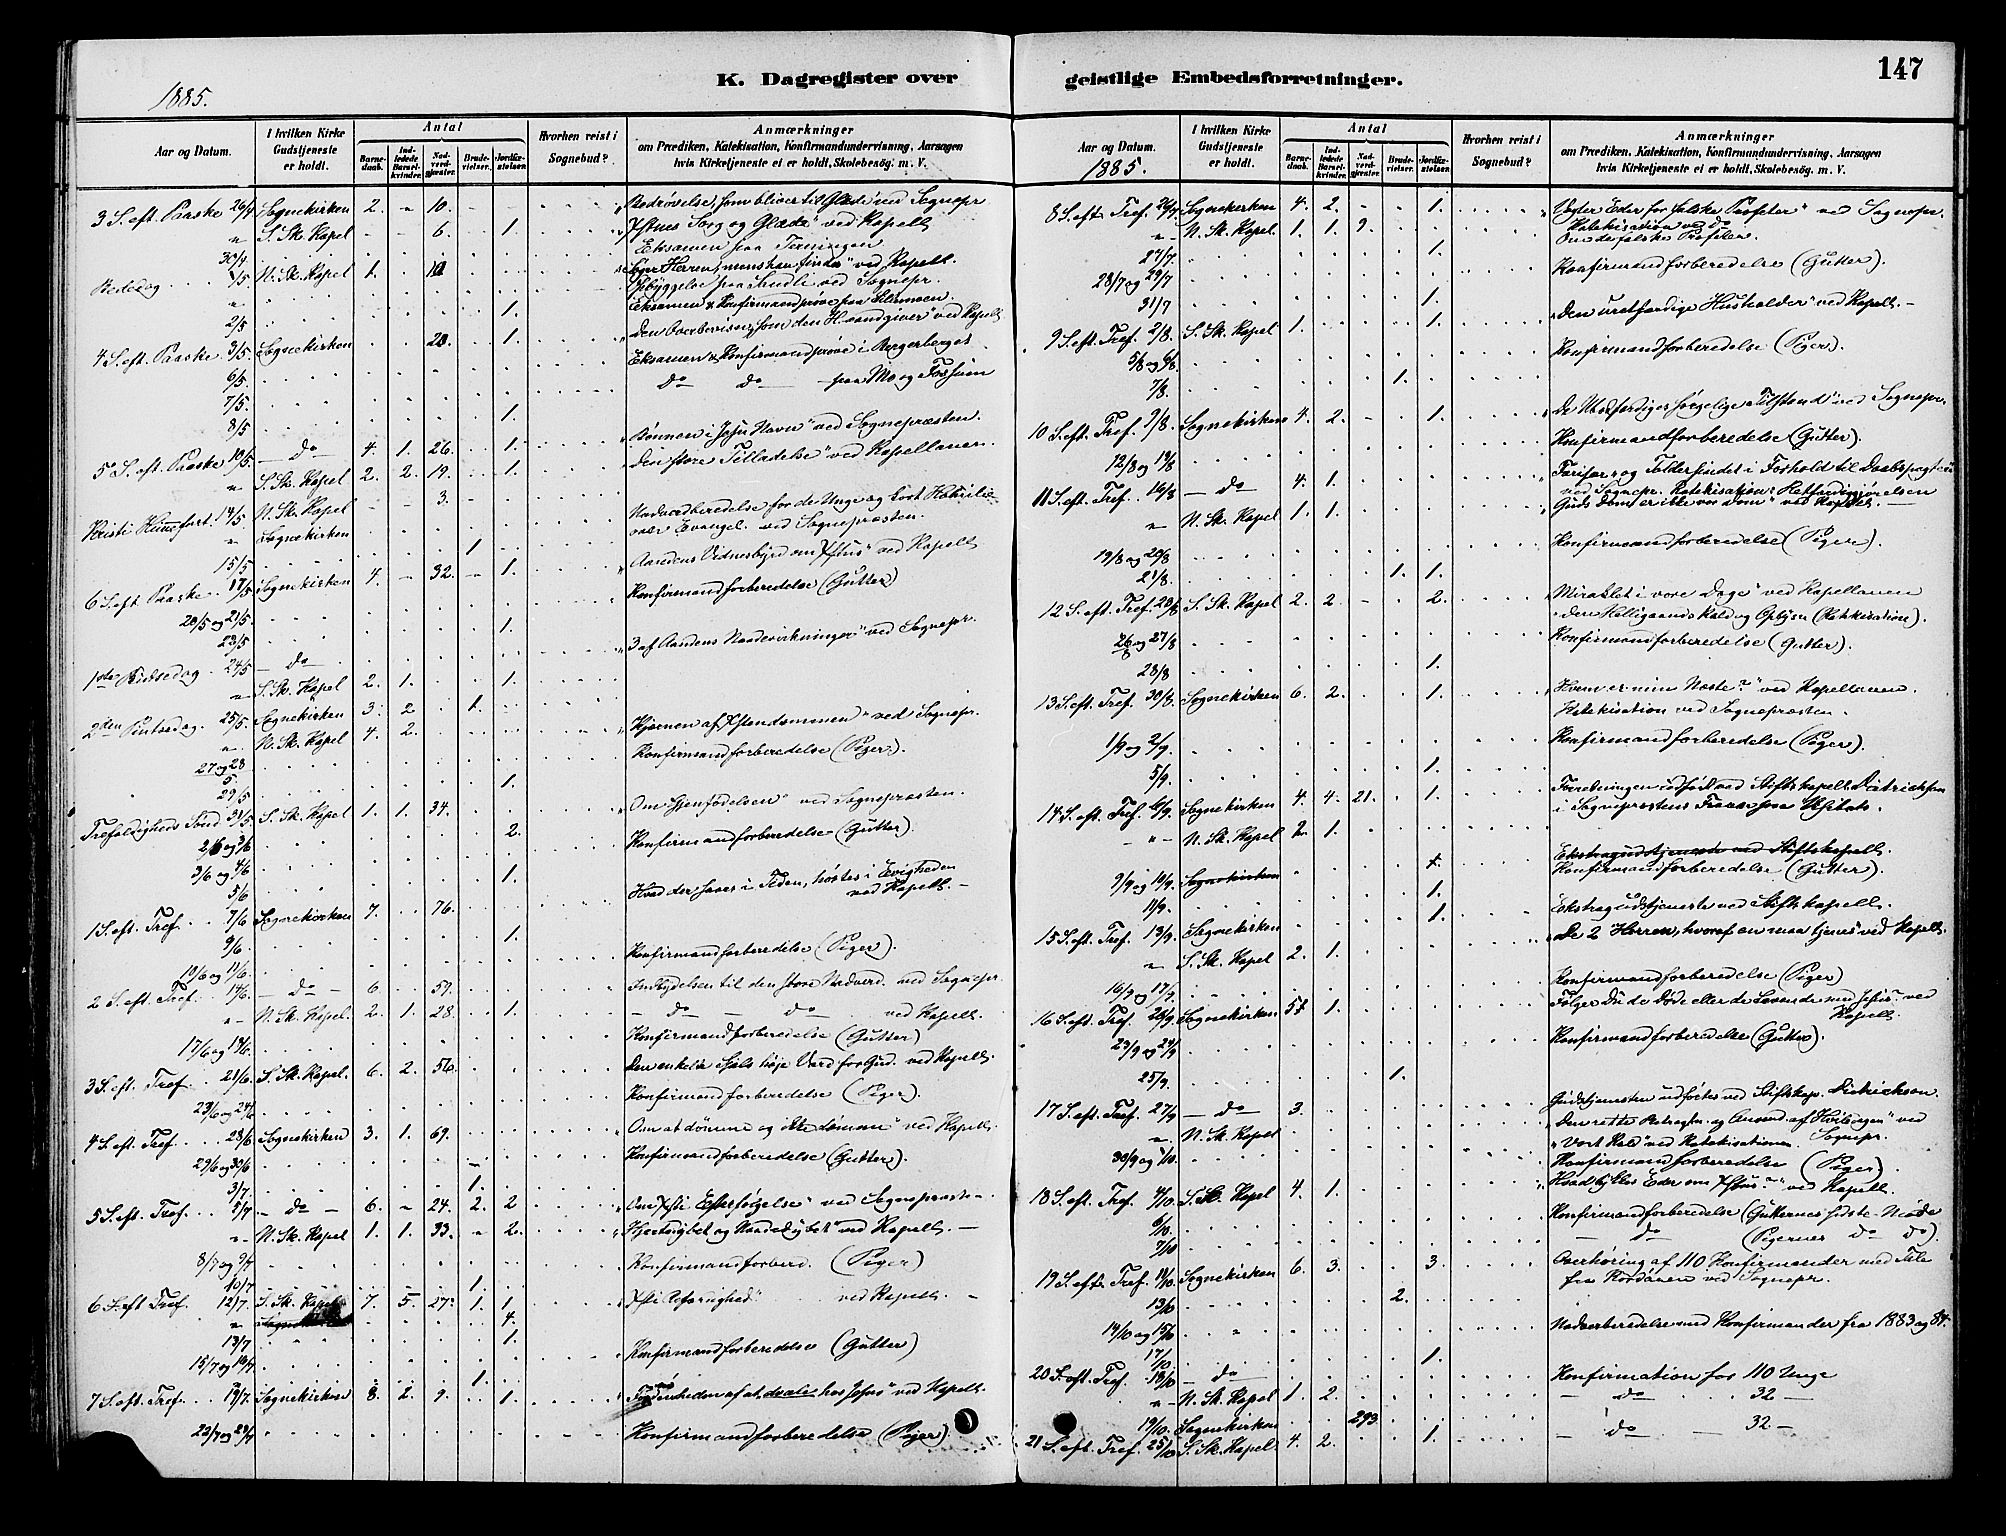 K. Dagregister over
geistlige Embedsforretninger.
147
1885.
Aar og Datum.
I hvilken Kirke Gudstjeneste er holdt.
Antal
Barnedaab.
Indledede Barselkvinder.
Nadverdgjester.
Brudevielser.
Jordfæstelser.
Hvorhen reist i Sognebud?
Anmærkninger
om Prædiken, Katekisation, Konfirmandundervisning, Aarsagen
hvis Kirketjeneste ei er holdt, Skolebesøg. m. V.
3 S. eft. Paaske 26/4 Sognekirken 2. - 10. ved Sognepr
" S. Sk. Kapel - - 6. 1. Xstnes Sorg og Glæde" ved Kapell
30/4 Eksamen paa
Bededag 1/5 N. Sk. Kapel 1. ved Kapell.
ved Sognepr.
2/5 1. Eksamen & Konfirmandprøve paa
4 S. eft. Paaske 3/5 Sognekirken 28. 1. ved Kapell
6/5. Eksamen & Konfirmandprøve i Bergerberget
7/5. Do Do paa Mo og Fossum
8/5 1.
5 S. eft. Paaske 10/5. Do 4. 1. 26. 1. Bønnen i Jesu Navn" ved Sognepræsten.
" S. Sk. Kapel 2. 2. 19. 1. Den store Tilladelse" ved Kapellanen.
Kristi Himmelfart. 14/5 N. Sk. Kapel - - 3. -
" Sognekirken Nadverdberedelse for de Unge og
Evangel. ved Sognepræsten.
15/5 1
6 S. eft. Paaske 17/5 Sognekirken 4. - 32. - 1. Aandens Vidnesbyrd om Xstus" ved Kapell
20/5 og 21/5. Konfirmandforberedelse (Gutter)
23/5 1.
1ste Pintsedag 24/5 Do 3 af Aandens Naadevirkninger" ved Sognepr.
" S. Sk. Kapel 2. 1. 1.
2den Pintsedag. 25/5 Sognekirken 3. 2 1.
" N. Sk. Kapel 4. 2. Kjernen af Xstendommen" ved Sognepr.
27 og 28/5. Konfirmandforberedelse (Piger).
29/5 1.
Trefoldigheds Sønd 31/5 S. Sk. Kapel 1. 1. 34. Om Gjenfødelsen" ved Sognepræsten.
2/6 og 3/6 2. Konfirmandforberedelse (Gutter).
3/6 og 4/6
5/6 1.
1 S. eft. Tref. 7/6 Sognekirken 7. 76. Hvad der saaes i Tiden, høstes i Evigheden
ved Kapell. -
9/6. 1.
10/6 og 11/6. Konfirmandforberedelse (Piger).
2 S. eft. Tref. 14/6. Do 6 59. Indbydelsen til den store Nadverd. ved Sognepr.
" N. Sk. Kapel. 2. 1. 28. 1. Do Do ved Kapell.
17/6 og 18/6. Konfirmandforberedelse (Gutter)
3 S. eft. Tref. 21/6. S. Sk. Kapel. 6. 2. 56. Den enkelte Sjæls høje Værd for Gud. ved Kapell.
23/6 og 24/6 Konfirmandforberedelse (Piger).
4 S. eft. Tref. 28/6 Sognekirken 3. 1. 69. Om at dømme og ikke dømme" ved Kapell.
29/6 og 30/6 Konfirmandforberedelse (Gutter).
3/7. 1.
5 S. eft. Tref. 5/7 Do 6. - 24. 2. 2 Om Xsti Efterfølgelse" ved Sognepræsten
" N. Sk. Kapel 1. 1. 33. - 2. ved Kapell. -
8/7 og 9/7 Konfirmandforbered. (Piger)
10/7 1.
6 S. eft Tref. 12/7. S. Sk. Kapel 7. 5. 27. 1. 1 ved Kapell. -
" 4.
13/7 1.
15/7 og 16/7 Konfirmandforberedelse (Gutter)
1.
7 S. eft. Tref. 19/7. Sognekirken 8. 2. 9. 1. af at dvæle hos Jesus" ved Kapell.
22/7 og 24/7 Konfirmandforberedelse (Piger)
Aar og Datum.
1885.
I hvilken Kirke Gudstjeneste er holdt.
Antal
Barnedaab.
Indledede Barselkvinder.
Nadverdgjester.
Brudevielser.
Jordfæstelser.
Hvorhen reist i Sognebud?
Anmærkninger
om Prædiken, Katekisation, Konfirmandundervisning, Aarsagen
hvis Kirketjeneste ei er holdt, Skolebesøg. m. V.
8 S. eft. Tref. 26/7 Sognekirken 4. 2. 1. Vogter Eder for falske Profeter" ved Sognepr.
" N. Sk. Kapel. 1. 1. 9. Katekisation ved Do
Om de falske Profeter.
27/7. 1.
28/7 og 29/7 Konfirmandforberedelse (Gutter).
31/7 1.
9 S. eft. Tref. 2/8. S. Sk. Kapel 1. 1. Den uretfærdige Husholder" ved Kapell. -
5/8 og 6/8. Konfirmandforberedelse (Piger).
7/8. 1.
10 S. eft. Tref. 9/8. Sognekirken 4. 2. 1. Tilstand" ved Sognepr.
12/8 og 13/8 Konfirmandforberedelse (Gutter).
11 S. eft. Tref. 16/8 Do 4. 1. Farisæer- og Toldersindet i Forhold til Daabspagten
ved Sognepr. Katekisation: Retfærdiggjørelsen
" N. Sk. Kapel 1. 1. Guds Dom er ikke vor Dom" ved Kapell. -
19/8 og 20/8 Konfirmandforberedelse (Piger).
21/8. 1. 1.
12 S. eft. Tref. 23/8 S. Sk. Kapel 2. 2 2. Miraklet i vore Dage" ved Kapellanen
Den Helligaands Kald og Oplysn (Katekisation).
26 og 27/8 Konfirmandforberedelse (Gutter).
28/8 1.
13 S. eft. Tref. 30/8. Sognekirken 6. 2. 1. Hvem er min Næste?" ved Kapellanen.
Katekisation ved Sognepræsten.
1/9 og 2/9. Konfirmandforberedelse (Piger).
5/9 1.
14 S. eft. Tref. 6/9. Sognekirken 4. 4. 21. 1. Forretningen udført ved Stiftskapell. Dietrichson
i Sognepræstens Fravær paa Visitats.
" N. Sk. Kapel 2. 1.
9/9 og 10/9. Sognekirken Ekstragudstjeneste ved Stiftskapell.
Konfirmandforberedelse (Gutter).
11/9. 1. Ekstragudstjeneste ved Stiftskapell.
15 S. eft. Tref. 13/9. Sognekirken 1. De 2 Herren, hvoraf en maa tjenes" ved Kapell.
" S. Sk. Kapel 2. 1.
16/9 og 17/9. Konfirmandforberedelse (Piger)
16 S. eft. Tref. 20/9. Sognekirken 5 1. Følger Du de Døde eller de Levende med Jesus" ved
Kapell.
23/9 og 24/9 Konfirmandforberedelse (Gutter).
25/9. 1.
17 S. eft. Tref. 27/9 Do 3. Gudstjenesten udførtes ved Stiftskap. Dietrichson.
" N. Sk. Kapel Den rette Betragtn. og Anvend. af Hviledagen" ved
"Vort Kald" ved Katekisationen Sognepr.
30/9 og 1/10. Konfirmandforberedelse (Piger).
18 S. eft. Tref. 4/10. S. Sk. Kapel 4. 1. Hvad tykkes Eder om Xstus?" ved Kapell.
6/10. Konfirmandforberedelse (Gutternes sidste Møde
7/10 Do (Pigernes Do Do).
19 S. eft. Tref. 11/10. Sognekirken 6. 3. 3. Overhøring af 110 Konfirmander med Tale
fra Kordøren ved Sognepr.
13/10 2.
14/10 og 15/10 med Konfirmander fra 1883 og 84.
17/10. 1.
20 S. eft. Tref. 18/10 Do Konfirmation for 110 Unge
" N. Sk. Kapel 1. 2. Do 32 -
19/10. Sognekirken 293. Do 32 -
21 S. eft. Tref. 25/10 S. Sk. Kapel. 4. 2. 1.